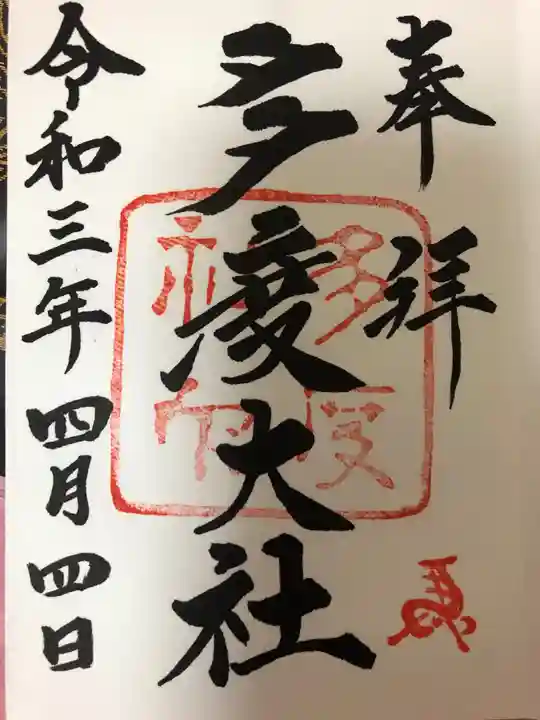 奉拝
多度大社
令和三年四月四日
多度神印
馬